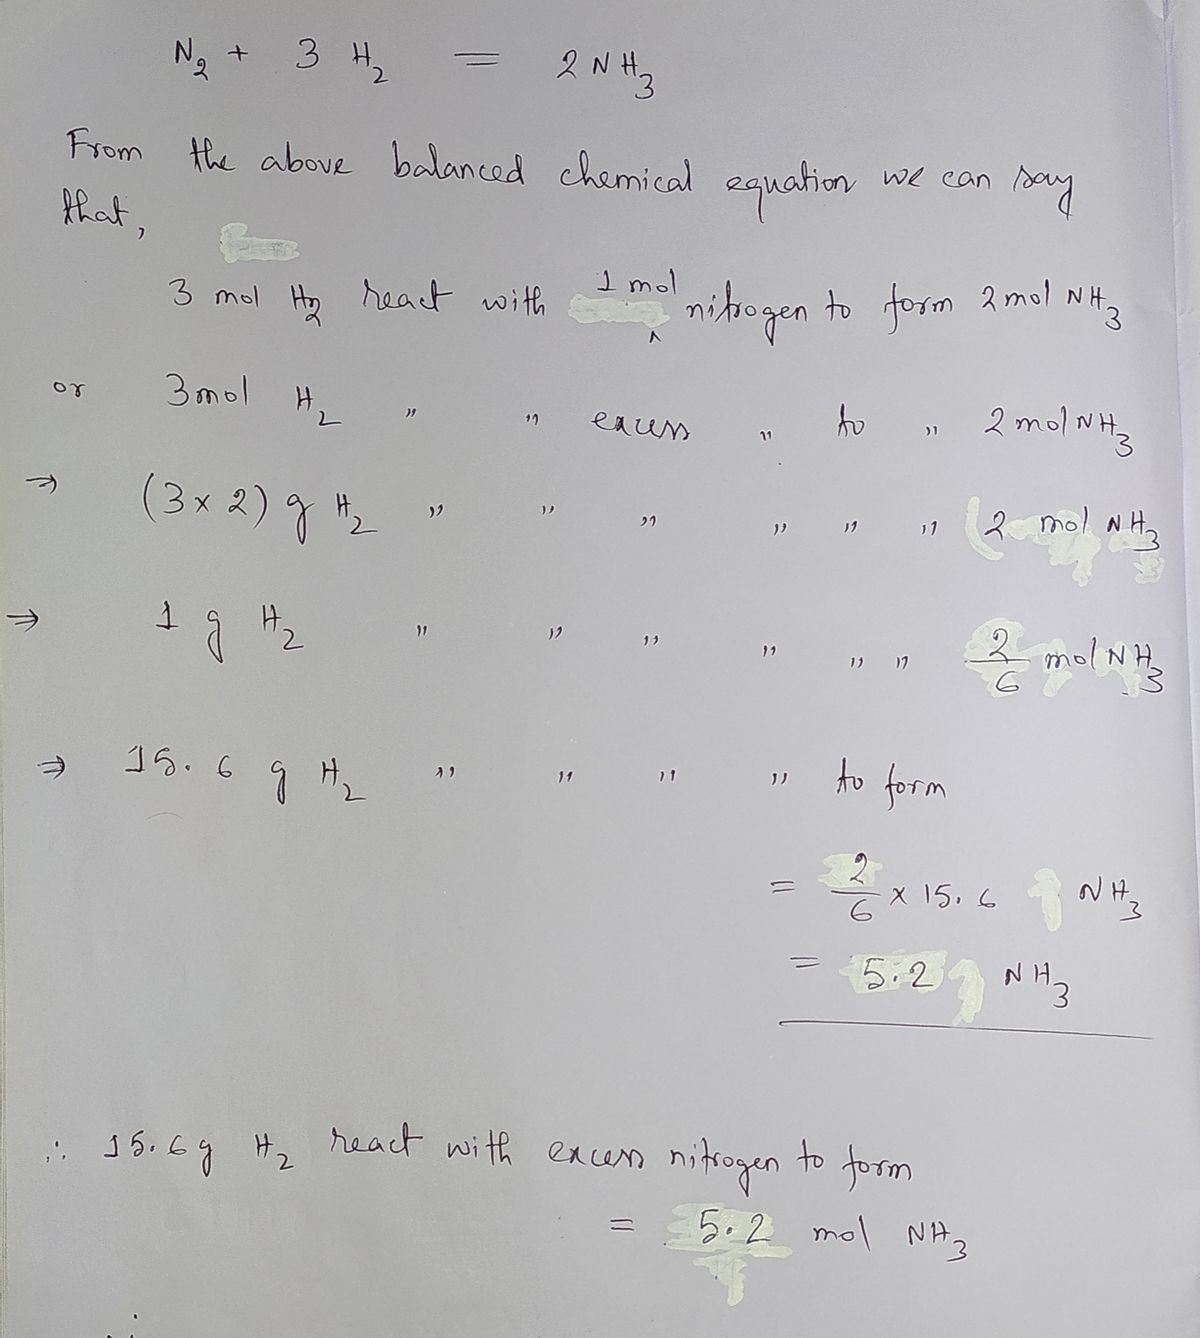 N₂ + 3 H₂ = 2 NH₃
From the above balanced chemical equation we can say
that,
3 mol H₂ react with 1 mol nitrogen to form 2 mol NH₃
or 3 mol H₂ " " excess " to " 2 mol NH₃
⇒ (3 × 2) g H₂ " " " " " " (2 mol NH₃
⇒ 1 g H₂ " " " " " " 2/6 mol NH₃
⇒ 15.6 g H₂ " " " " to form
= 2/6 × 15.6 NH₃
= 5.2 NH₃
∴ 15.6 g H₂ react with excess nitrogen to form
= 5.2 mol NH₃